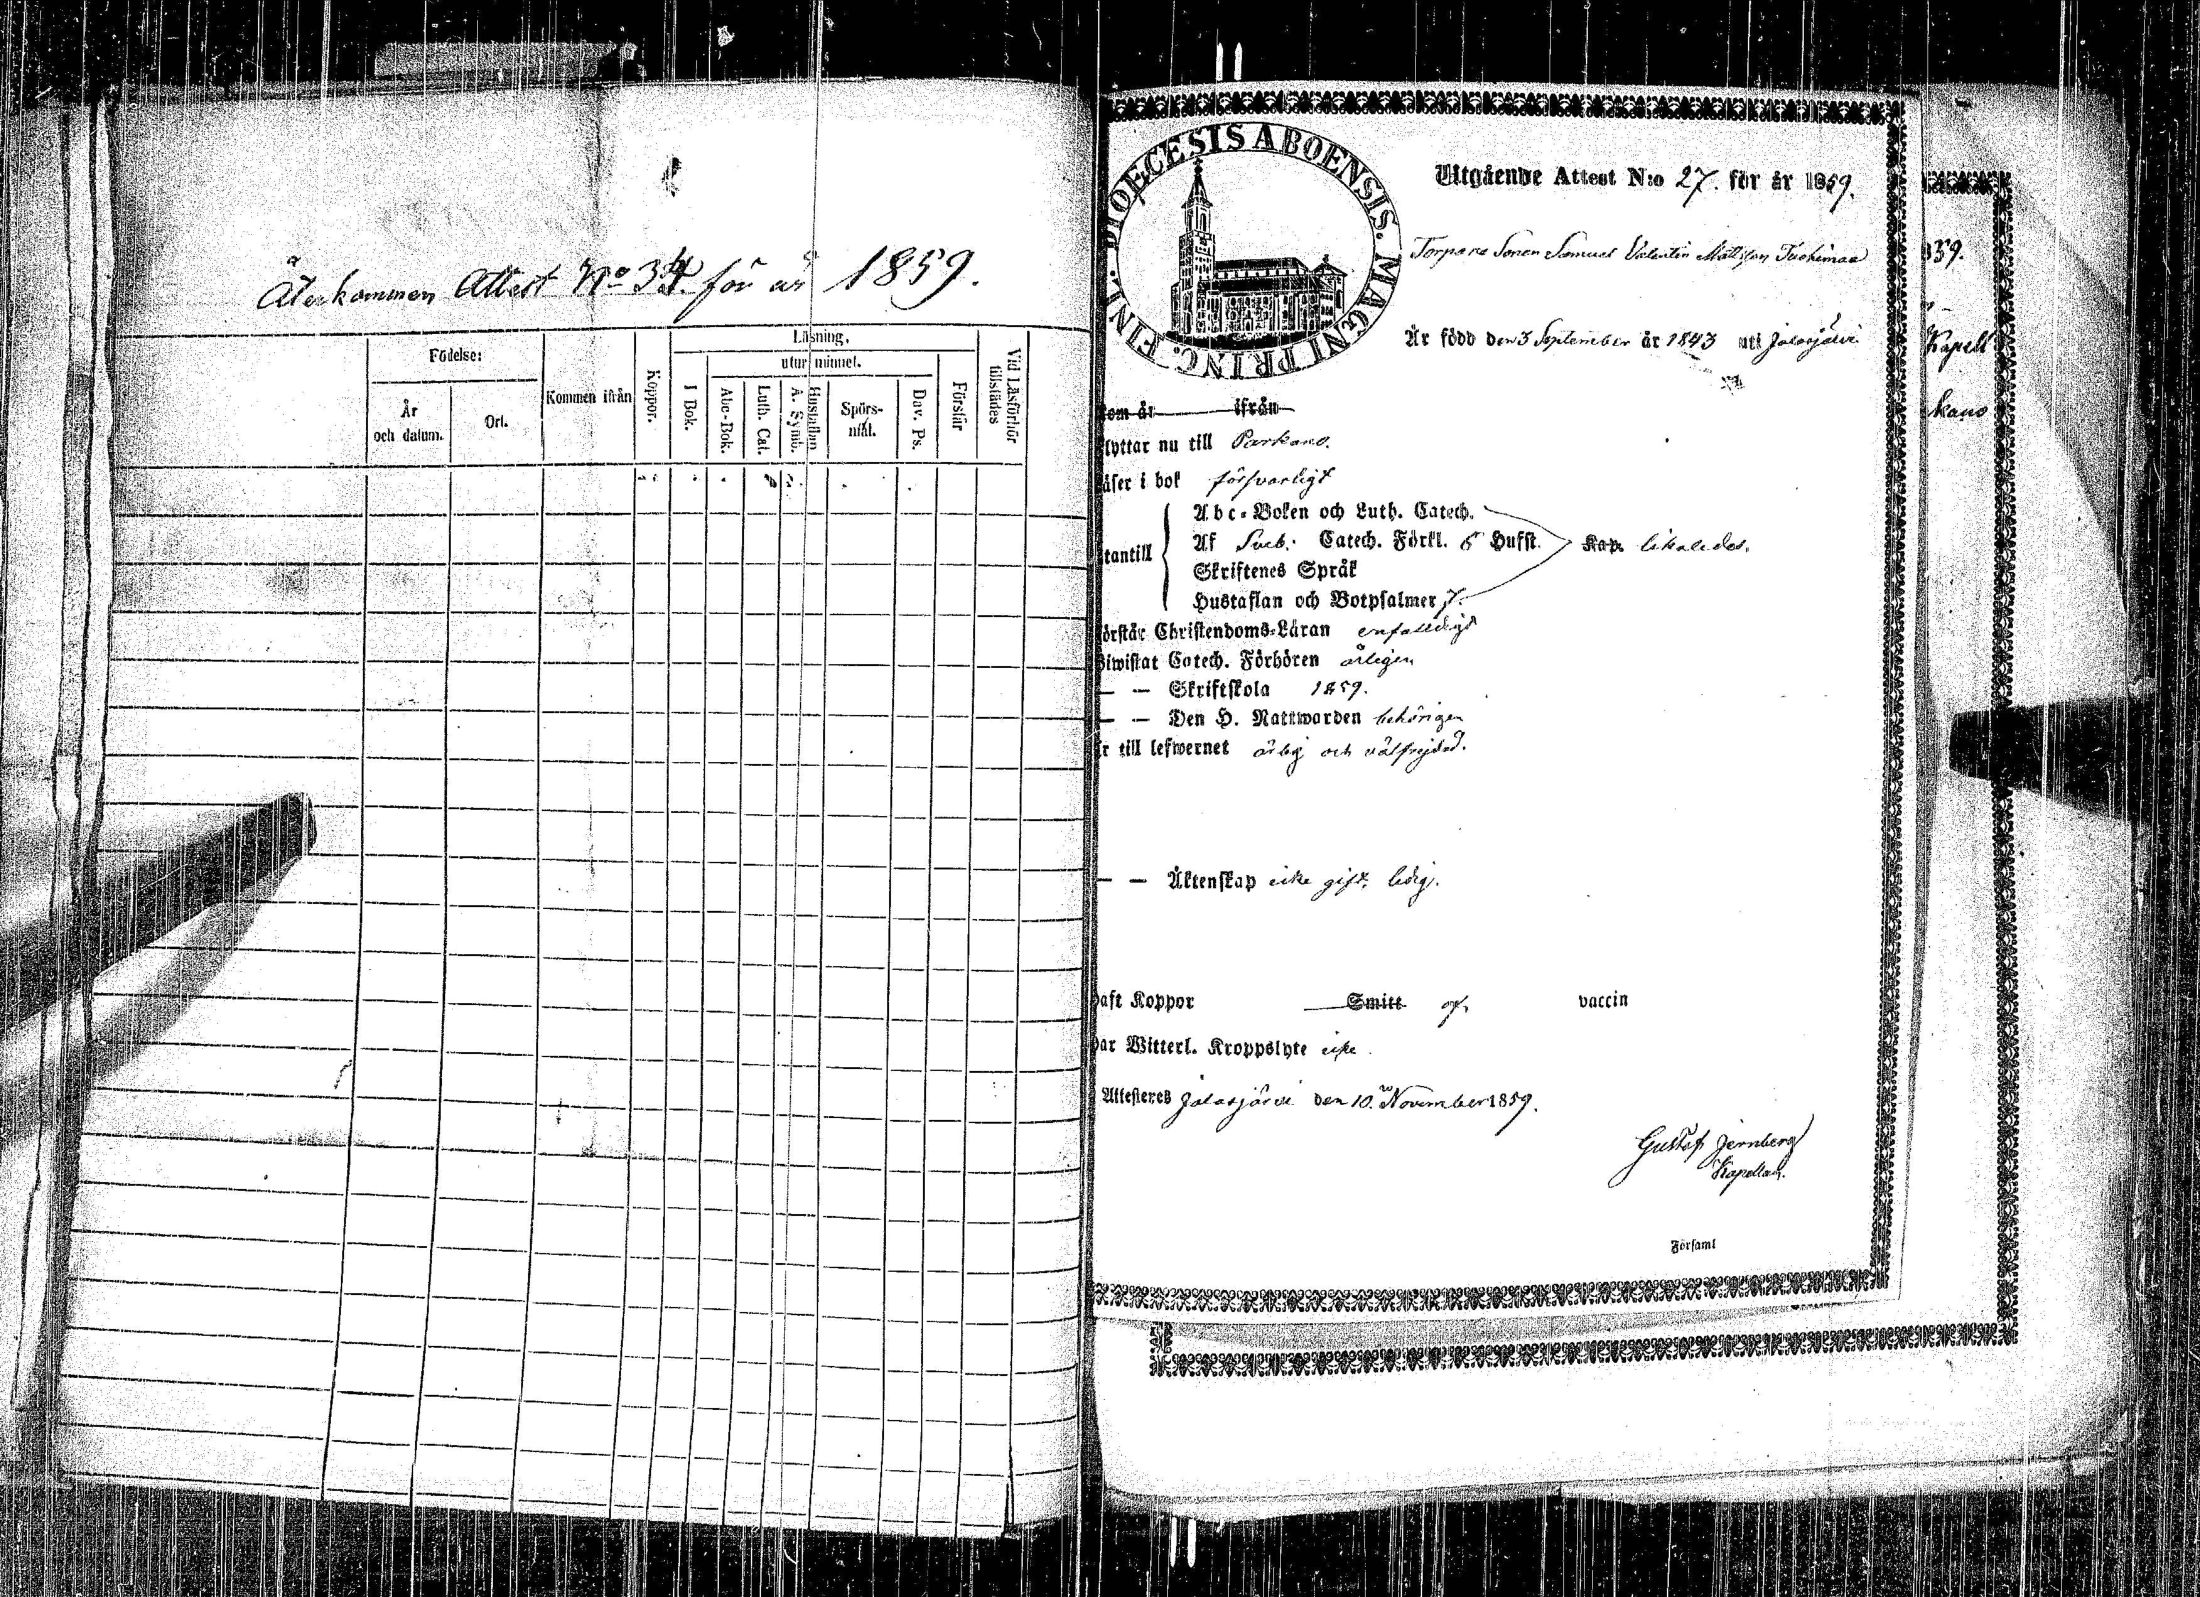 Återkommen Attest No 34. för år 1859.
Födelse:
År
och datum.
Ort.
Kommen ifrån
Koppor.
Läsning,
utur minnet.
I Bok.
Abc-Bok.
Luth. Cat.
A. Symb.
Hustaflan
Spörs-
mål.
Dav. Ps.
Förstår
Vid Läsförhör
tillstädes
DIOECESIS ABOENSIS. MAGNI PRINC. FINL.
Utgående Attest N:o 27. för år 1859.
Torpare Sonen Samuel Valentin Mattsson Tuohimaa
Är född den 3 September år 1843 uti Jalasjärvi
kom år ifrån
flyttar nu till Parkano.
läser i bok försvarligt
Abc-Boken och Luth. Catech.
Af Sveb. Catech. Förkl. 5 Hufst. Kap. likaledes.
utantill
Skriftenes Språk
Hustaflan och Botpsalmer 7.
förstår Christendoms-Läran enfaldigt
Biwistat Catech. Förhören årligen
— — Skriftskola 1859.
— — Den H. Nattwarden behörigen
är till lefwernet ärlig och välfrejdad.
— — Äktenskap icke gift, ledig.
haft Koppor Smitt gt. vaccin
har Witterl. Kroppslyte icke.
Attesteres Jalasjärvi den 10. November 1859.
Gustaf Jernberg
Kapellan.
Församl
859.
Kapell
kano